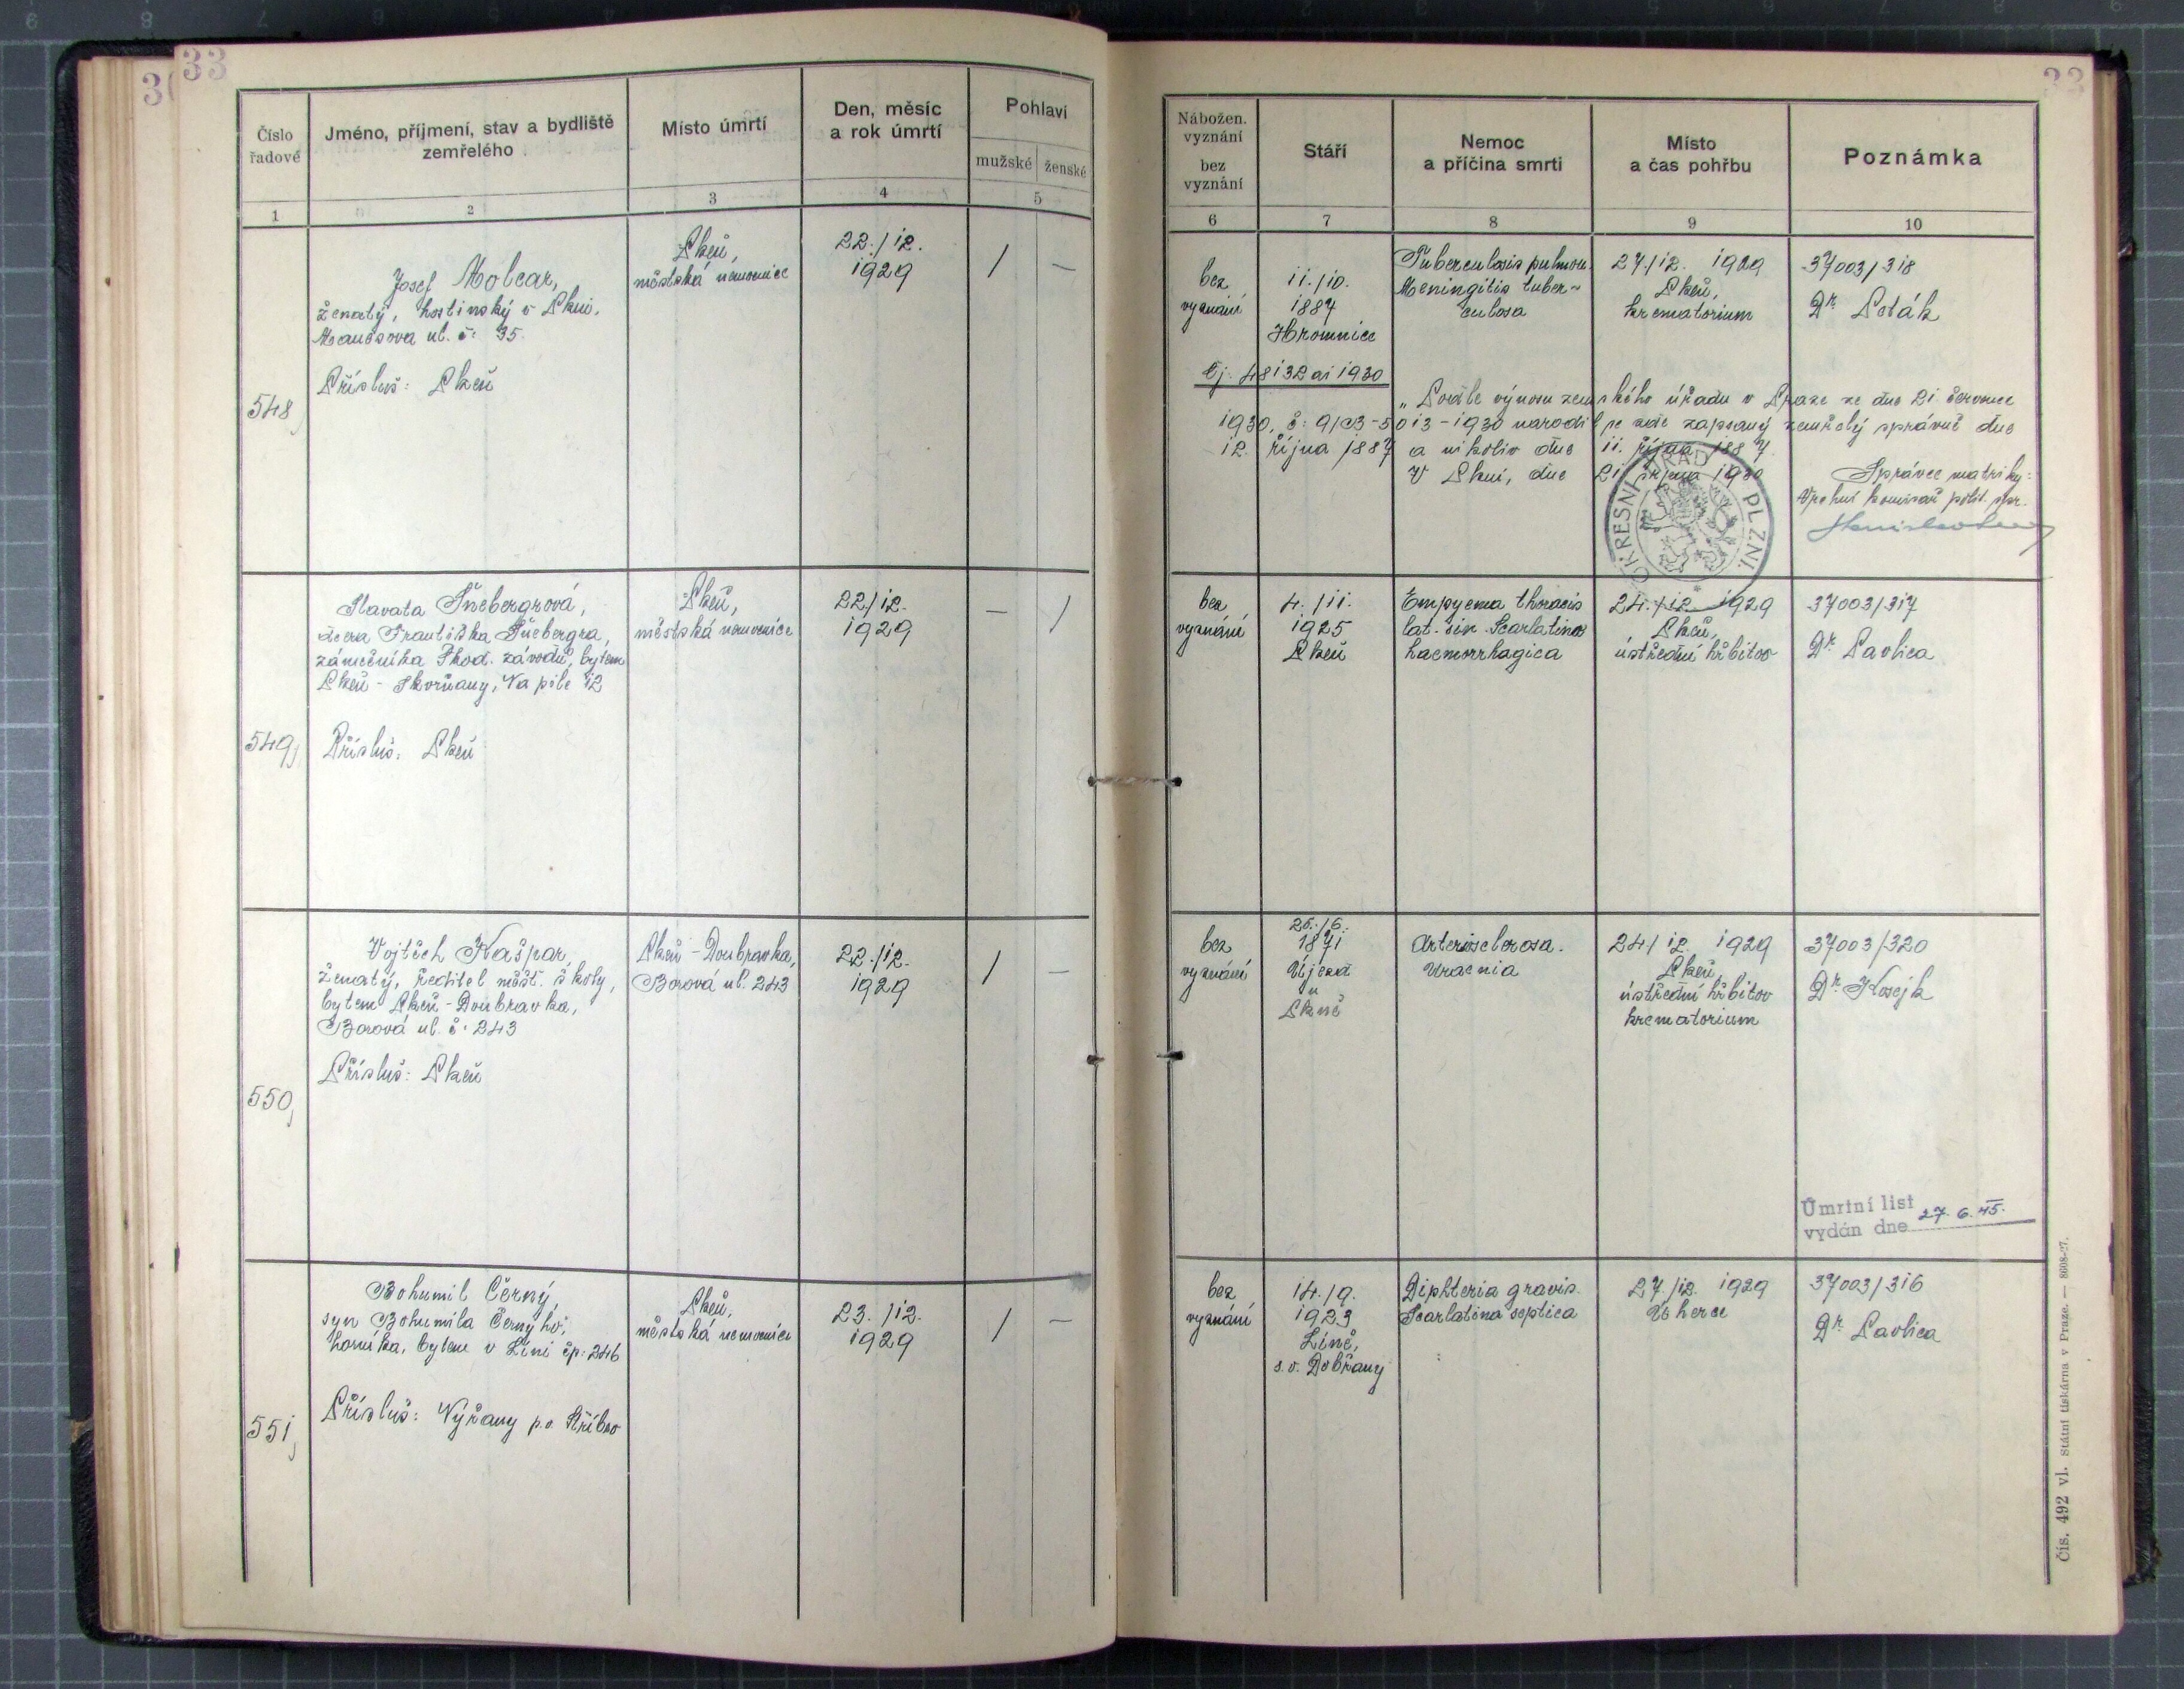 33
Číslo řadové
Jméno, příjmení, stav a bydliště zemřelého
Místo úmrtí
Den, měsíc a rok úmrtí
Pohlaví
mužské
ženské
1
2
3
4
5
548,
Josef Molcar,
ženatý, hostinský v Plzni,
Manesova ul. č: 35.
Přísluš: Plzeň
Plzeň,
městská nemocnice
22./12.
1929
/
—
549,
Slavata Šnebergrová,
dcera Františka Šnebergra,
zámečníka Škod. závodů, bytem
Plzeň - Skvrňany, Na pile 12
Přísluš: Plzeň
Plzeň,
městská nemocnice
22/12.
1929
—
/
550,
Vojtěch Kašpar,
ženatý, ředitel měšt. školy,
bytem Plzeň - Doubravka,
Borová ul. č. 243
Přísluš: Plzeň
Plzeň - Doubravka,
Borová ul. 243
22./12.
1929
/
—
551,
Bohumil Černý,
syn Bohumila Černýho,
horníka, bytem v Líni čp: 246
Přísluš: Nýřany p.o. Stříbro
Plzeň,
městská nemocnice
23./12.
1929
/
—
33
Nábožen. vyznání
bez vyznání
Stáří
Nemoc a příčina smrti
Místo a čas pohřbu
Poznámka
6
7
8
9
10
bez
vyznání
11./10.
1887
Hromnice
Tuberculosis pulmon.
Meningitis tuber-
culosa
27./12. 1929
Plzeň,
krematorium
37003/318
Dr.
Čj. 48132 ai 1930
„Podle výnosu zemského úřadu v Praze ze dne 21. července
1930, č: 9/B-5013-1930 narodil se zde zapsaný zemřelý správně dne
12. října 1887 a nikoliv dne 11. října 1887.
V Plzni, dne 21. srpna 1930
Správce matriky:
Vrchní komisař polit. spr.
OKRESNÍ ÚŘAD PLZNI
bez
vyznání
4./11.
1925
Plzeň
Empyema thoracis
lat. sin. Scarlatina
haemorrhagica
24./12. 1929
Plzeň,
ústřední hřbitov
37003/317
Dr. Pavlica
bez
vyznání
25./6.
1871
Újezd
u
Plzně
Arteriosclerosa.
Uraemia
24/12. 1929
Plzeň,
ústřední hřbitov
krematorium
37003/320
Dr. Kosejk
Úmrtní list
vydán dne 27. 6. 45.
bez
vyznání
14./9.
1923
Líně,
s.o. Dobřany
Diphteria gravis.
Scarlatina septica
27./12. 1929
Úherce
37003/316
Dr. Pavlica
Čís. 492 vl. Státní tiskárna v Praze. — 8608-27.